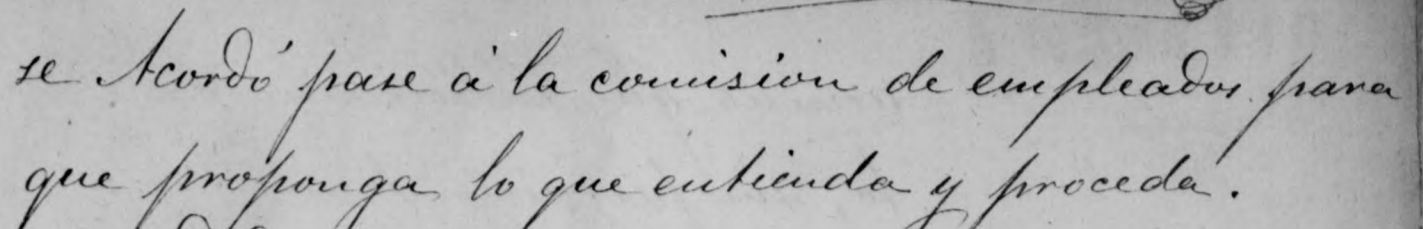 se Acordó pase á la comision de empleados para
que proponga lo que entienda y proceda.